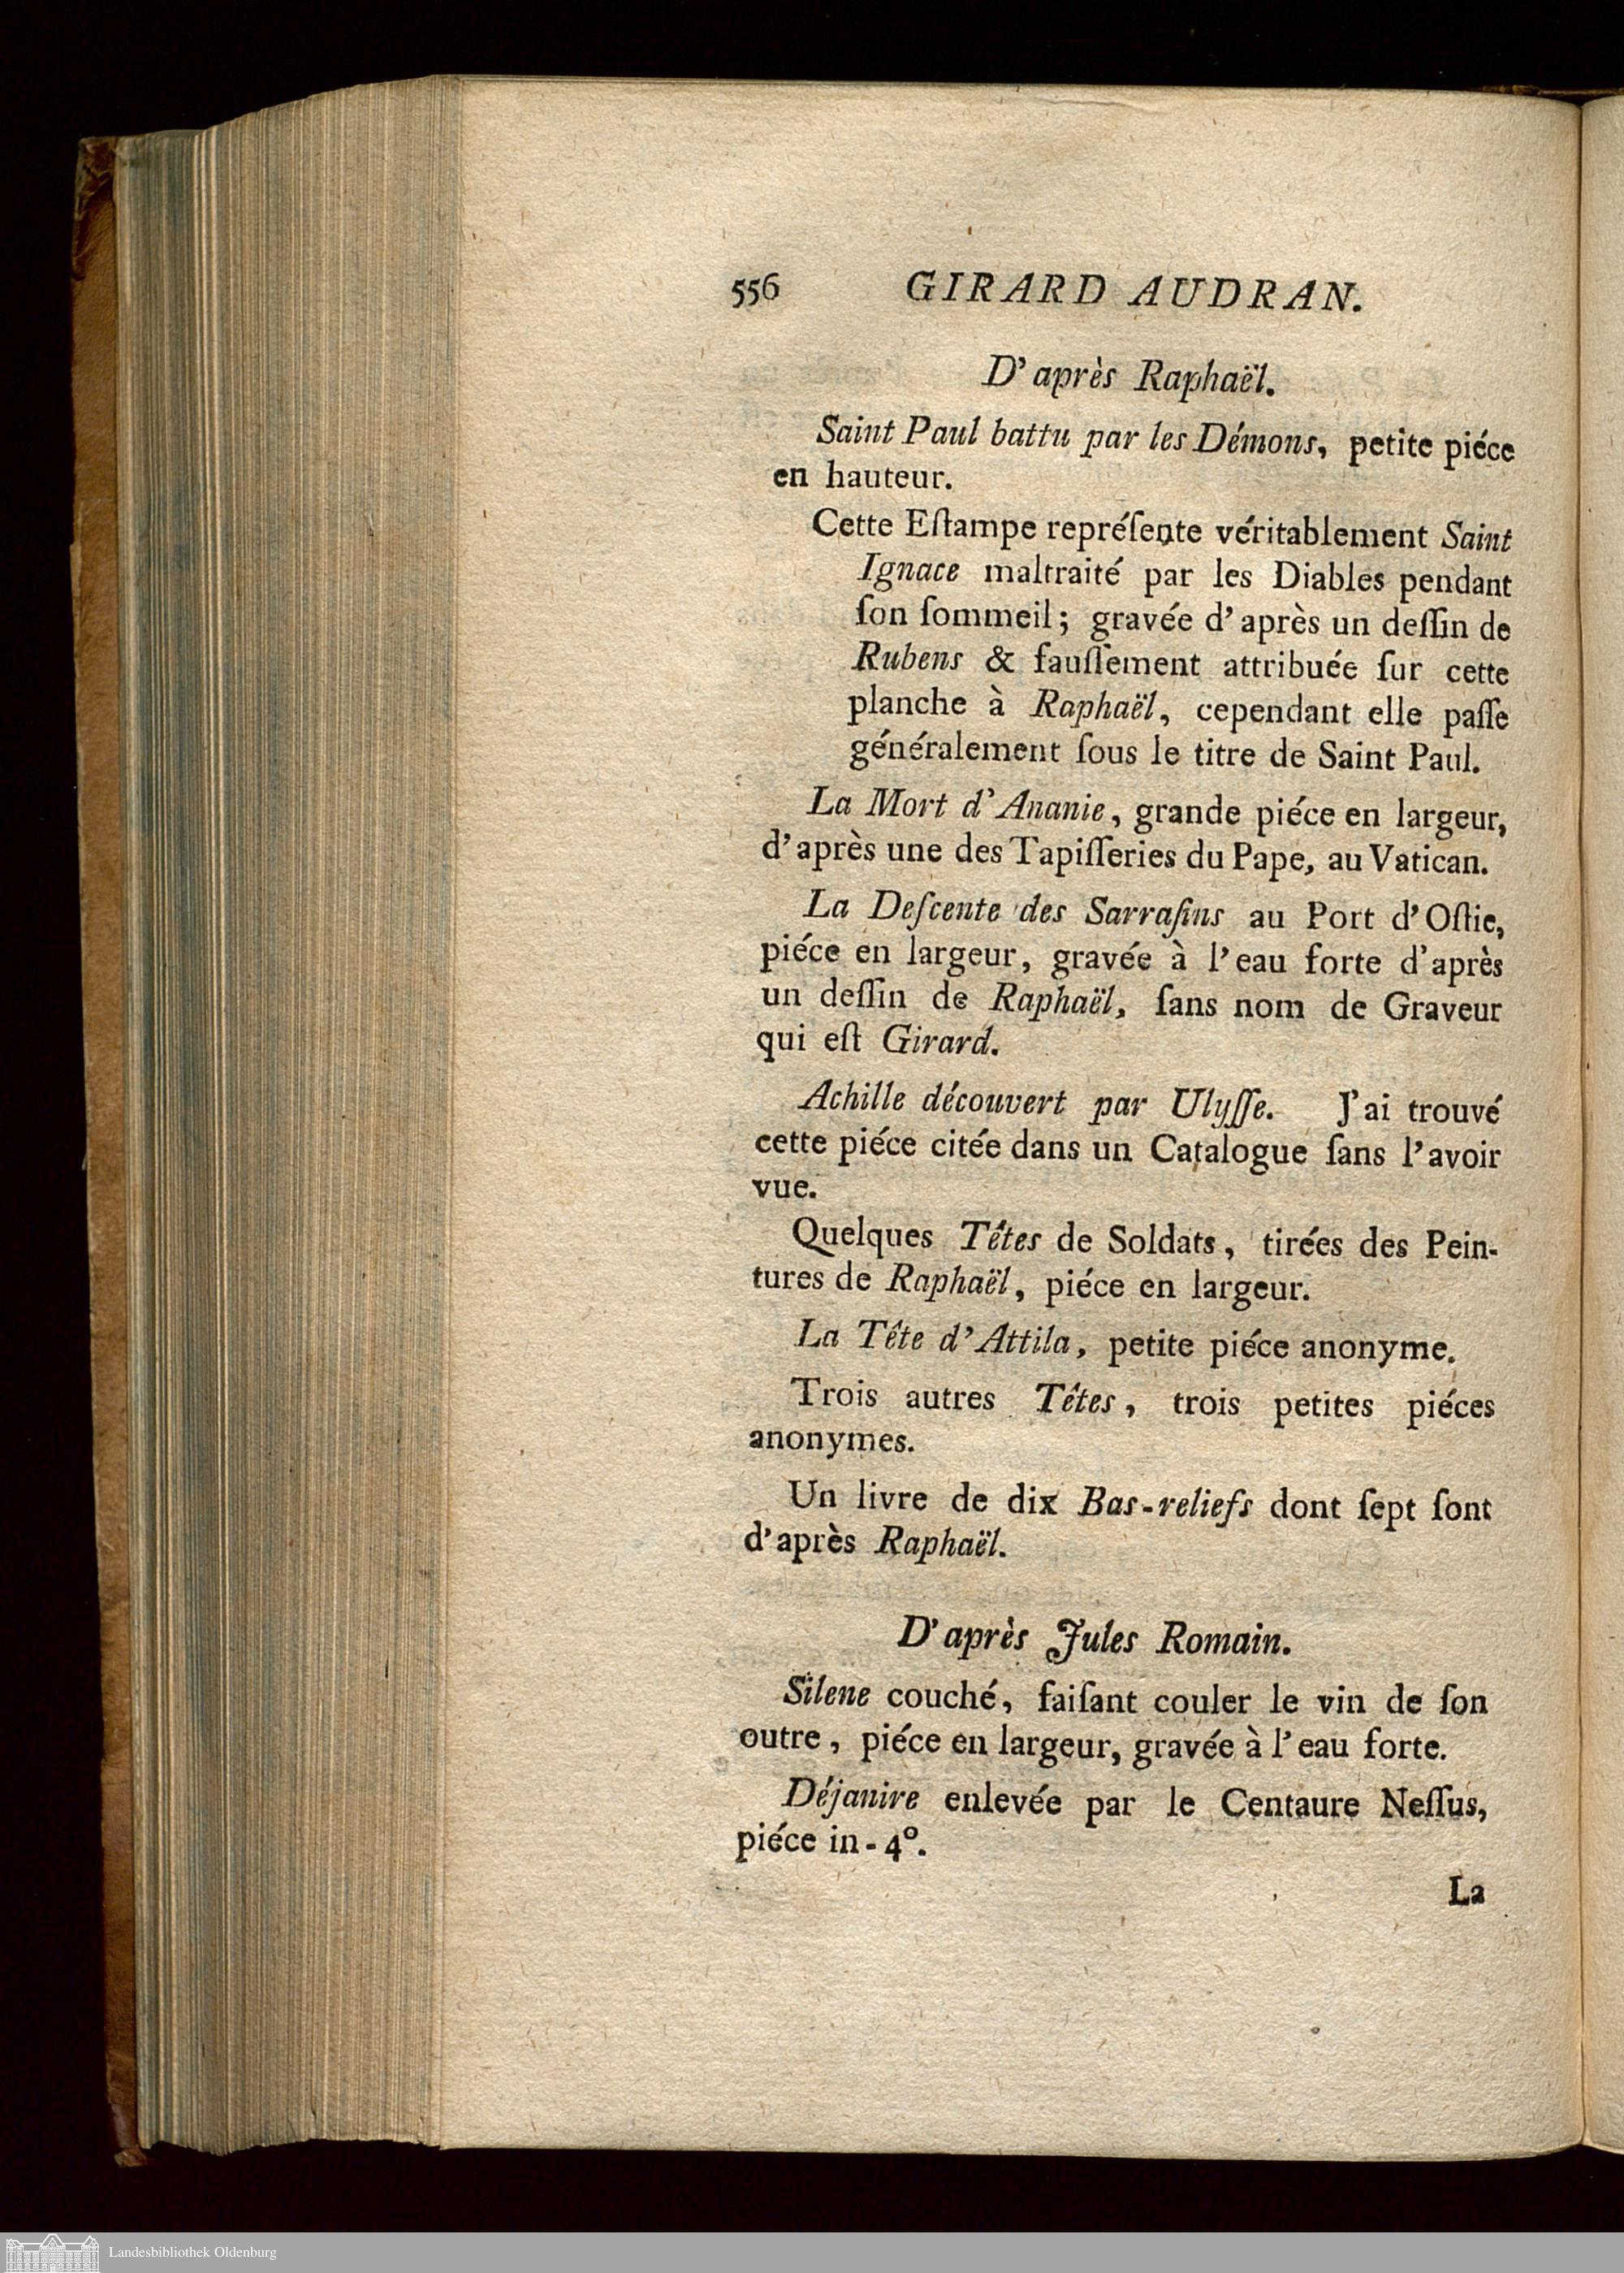 556 GIRARD AUDRAN.
D'après Raphaël.
Saint Paul battu par les Démons, petite piéce
en hauteur.
Cette Eſtampe repréſente véritablement Saint
Ignace maltraité par les Diables pendant
ſon ſommeil; gravée d'après un deſſin de
Rubens & fauſſement attribuée ſur cette
planche à Raphaël, cependant elle paſſe
généralement ſous le titre de Saint Paul.
La Mort d'Ananie, grande piéce en largeur,
d'après une des Tapiſſeries du Pape, au Vatican.
La Deſcente des Sarraſins au Port d'Oſtie,
piéce en largeur, gravée à l'eau forte d'après
un deſſin de Raphaël, ſans nom de Graveur
qui eſt Girard.
Achille découvert par Ulyſſe. J'ai trouvé
cette piéce citée dans un Catalogue ſans l'avoir
vue.
Quelques Têtes de Soldats, tirées des Pein-
tures de Raphaël, piéce en largeur.
La Tête d'Attila, petite piéce anonyme.
Trois autres Têtes, trois petites piéces
anonymes.
Un livre de dix Bas-reliefs dont ſept ſont
d'après Raphaël.
D'après Jules Romain.
Silene couché, faiſant couler le vin de ſon
outre, piéce en largeur, gravée à l'eau forte.
Déjanire enlevée par le Centaure Neſſus,
piéce in-4°.
La
Landesbibliothek Oldenburg